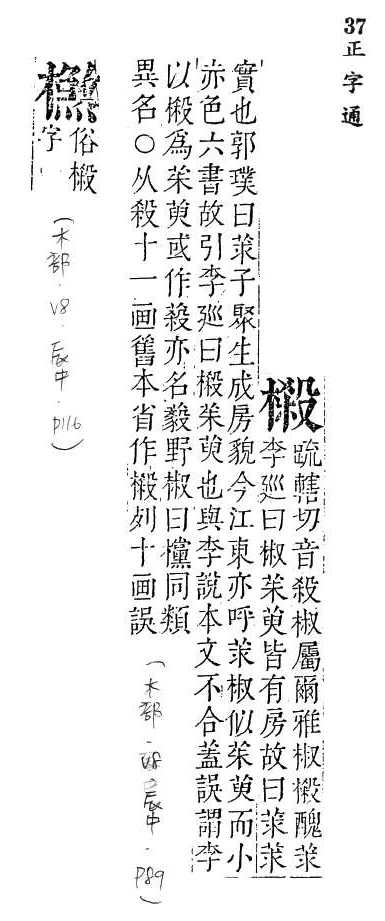 37 正字通
樧
疏轄切音殺椒屬爾雅椒樧醜莍
李廵曰椒茱萸皆有房故曰莍莍
實也郭璞曰莍子聚生成房貌今江東亦呼莍椒似茱萸而小
亦色六書故引李廵曰樧茱萸也與李說本文不合蓋誤謂李
以樧爲茱萸或作蔱亦名藙野椒曰欓同類
異名○从殺十一画舊本省作樧列十画誤
(木部．V8．辰中．P89)
俗樧
字
(木部．V8．辰中．P116)